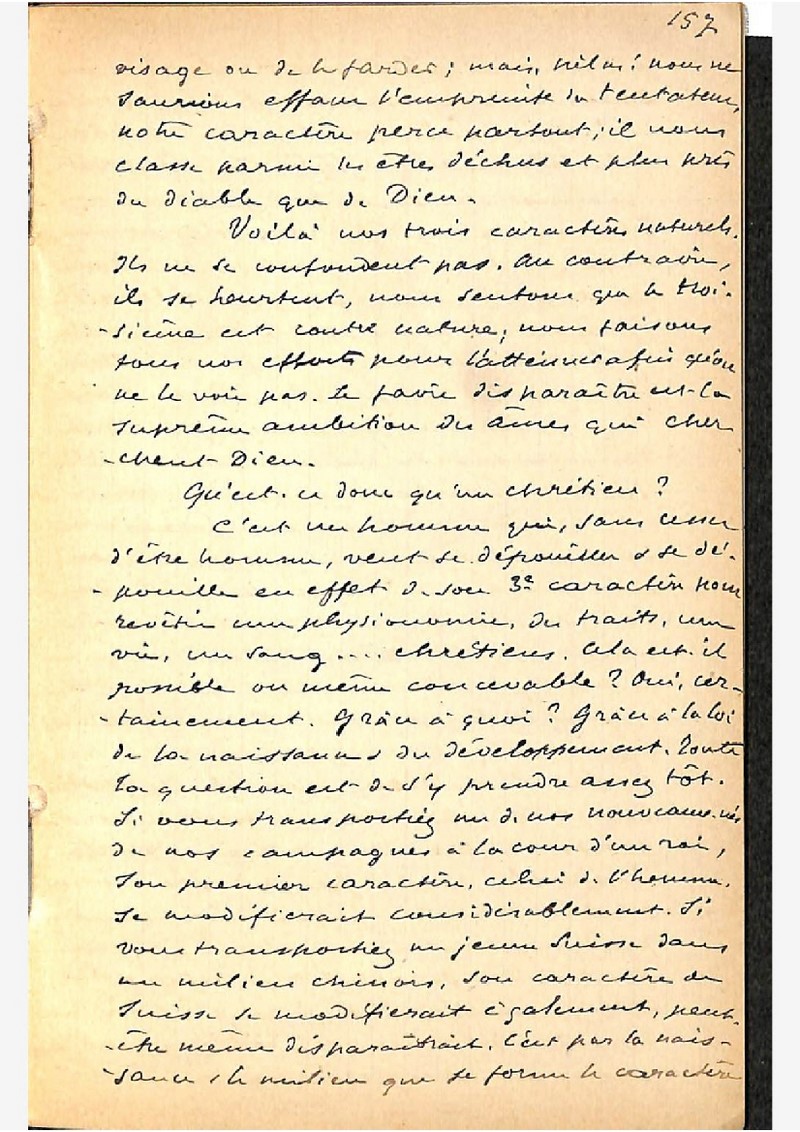 157
visage ou de le farder; mais, hélas! nous ne
saurions effacer l'empreinte du tentateur,
notre caractère perce partout; il nous
classe parmi les êtres déchus et plus près
du diable que de Dieu.
Voilà nos trois caractères naturels.
Ils ne se confondent pas. Au contraire,
ils se heurtent, nous sentons que le troi-
-sième est contre nature; nous faisons
tous nos efforts pour l'atténuer afin qu'on
ne le voie pas. Le faire disparaître est la
suprême ambition des âmes qui cher
-chent Dieu.
Qu'est-ce donc qu'un chrétien?
C'est un homme qui, sans cesser
d'être homme, veut se dépouiller & se dé-
-pouille en effet de son 3e caractère pour
revêtir une physionomie, des traits, une
vie, un sang .... chrétiens. Cela est-il
possible ou même concevable? Oui, cer-
-tainement. Grâce à quoi? Grâce à la loi
de la naissance & du développement. Toute
la question est de s'y prendre assez tôt.
Si vous transportiez un de nos nouveaux-nés
de nos campagnes à la cour d'un roi,
son premier caractère, celui de l'homme,
se modifierait considérablement. Si
vous transportiez un jeune Suisse dans
un milieu chinois, son caractère de
Suisse se modifierait également, peut-
-être même disparaîtrait. C'est par la nais-
-sance & le milieu que se forme le caractère